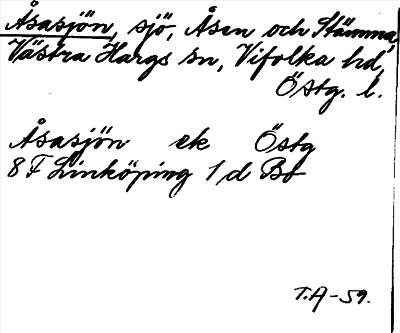 Åsasjön, sjö, Åsen och Stämma,
Västra Hargs sn, Vifolka hd,
Östg. l.
Åsasjön ek Östg
8 F Linköping 1 d Bo
T.A-59.